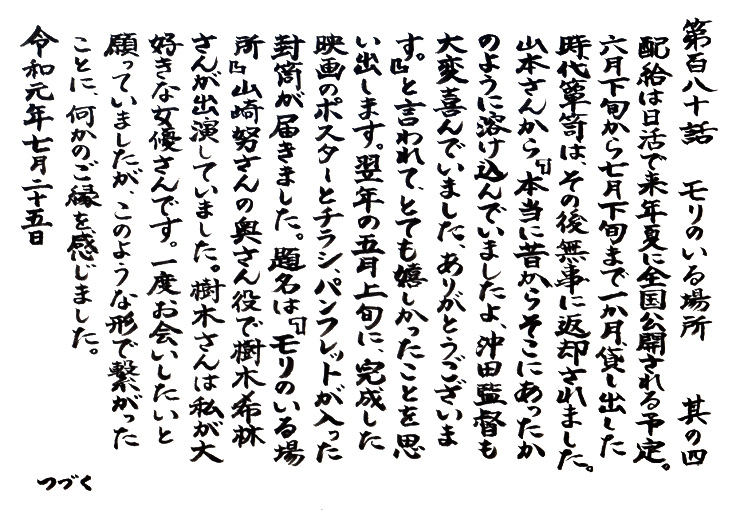 第百八十話　モリのいる場所　其の四
配給は日活で来年夏に全国公開される予定。
六月下旬から七月下旬まで一か月、貸し出した
時代箪笥は、その後無事に返却されました。
山本さんから『本当に昔からそこにあったか
のように溶け込んでいましたよ、沖田監督も
大変喜んでいました、ありがとうございま
す。』と言われて、とても嬉しかったことを思
い出します。翌年の五月上旬に、完成した
映画のポスターとチラシ、パンフレットが入った
封筒が届きました。題名は『モリのいる場
所』山崎努さんの奥さん役で樹木希林
さんが出演していました。樹木さんは私が大
好きな女優さんです。一度お会いしたいと
願っていましたが、このような形で繋がった
ことに、何かのご縁を感じました。
令和元年七月二十五日
つづく